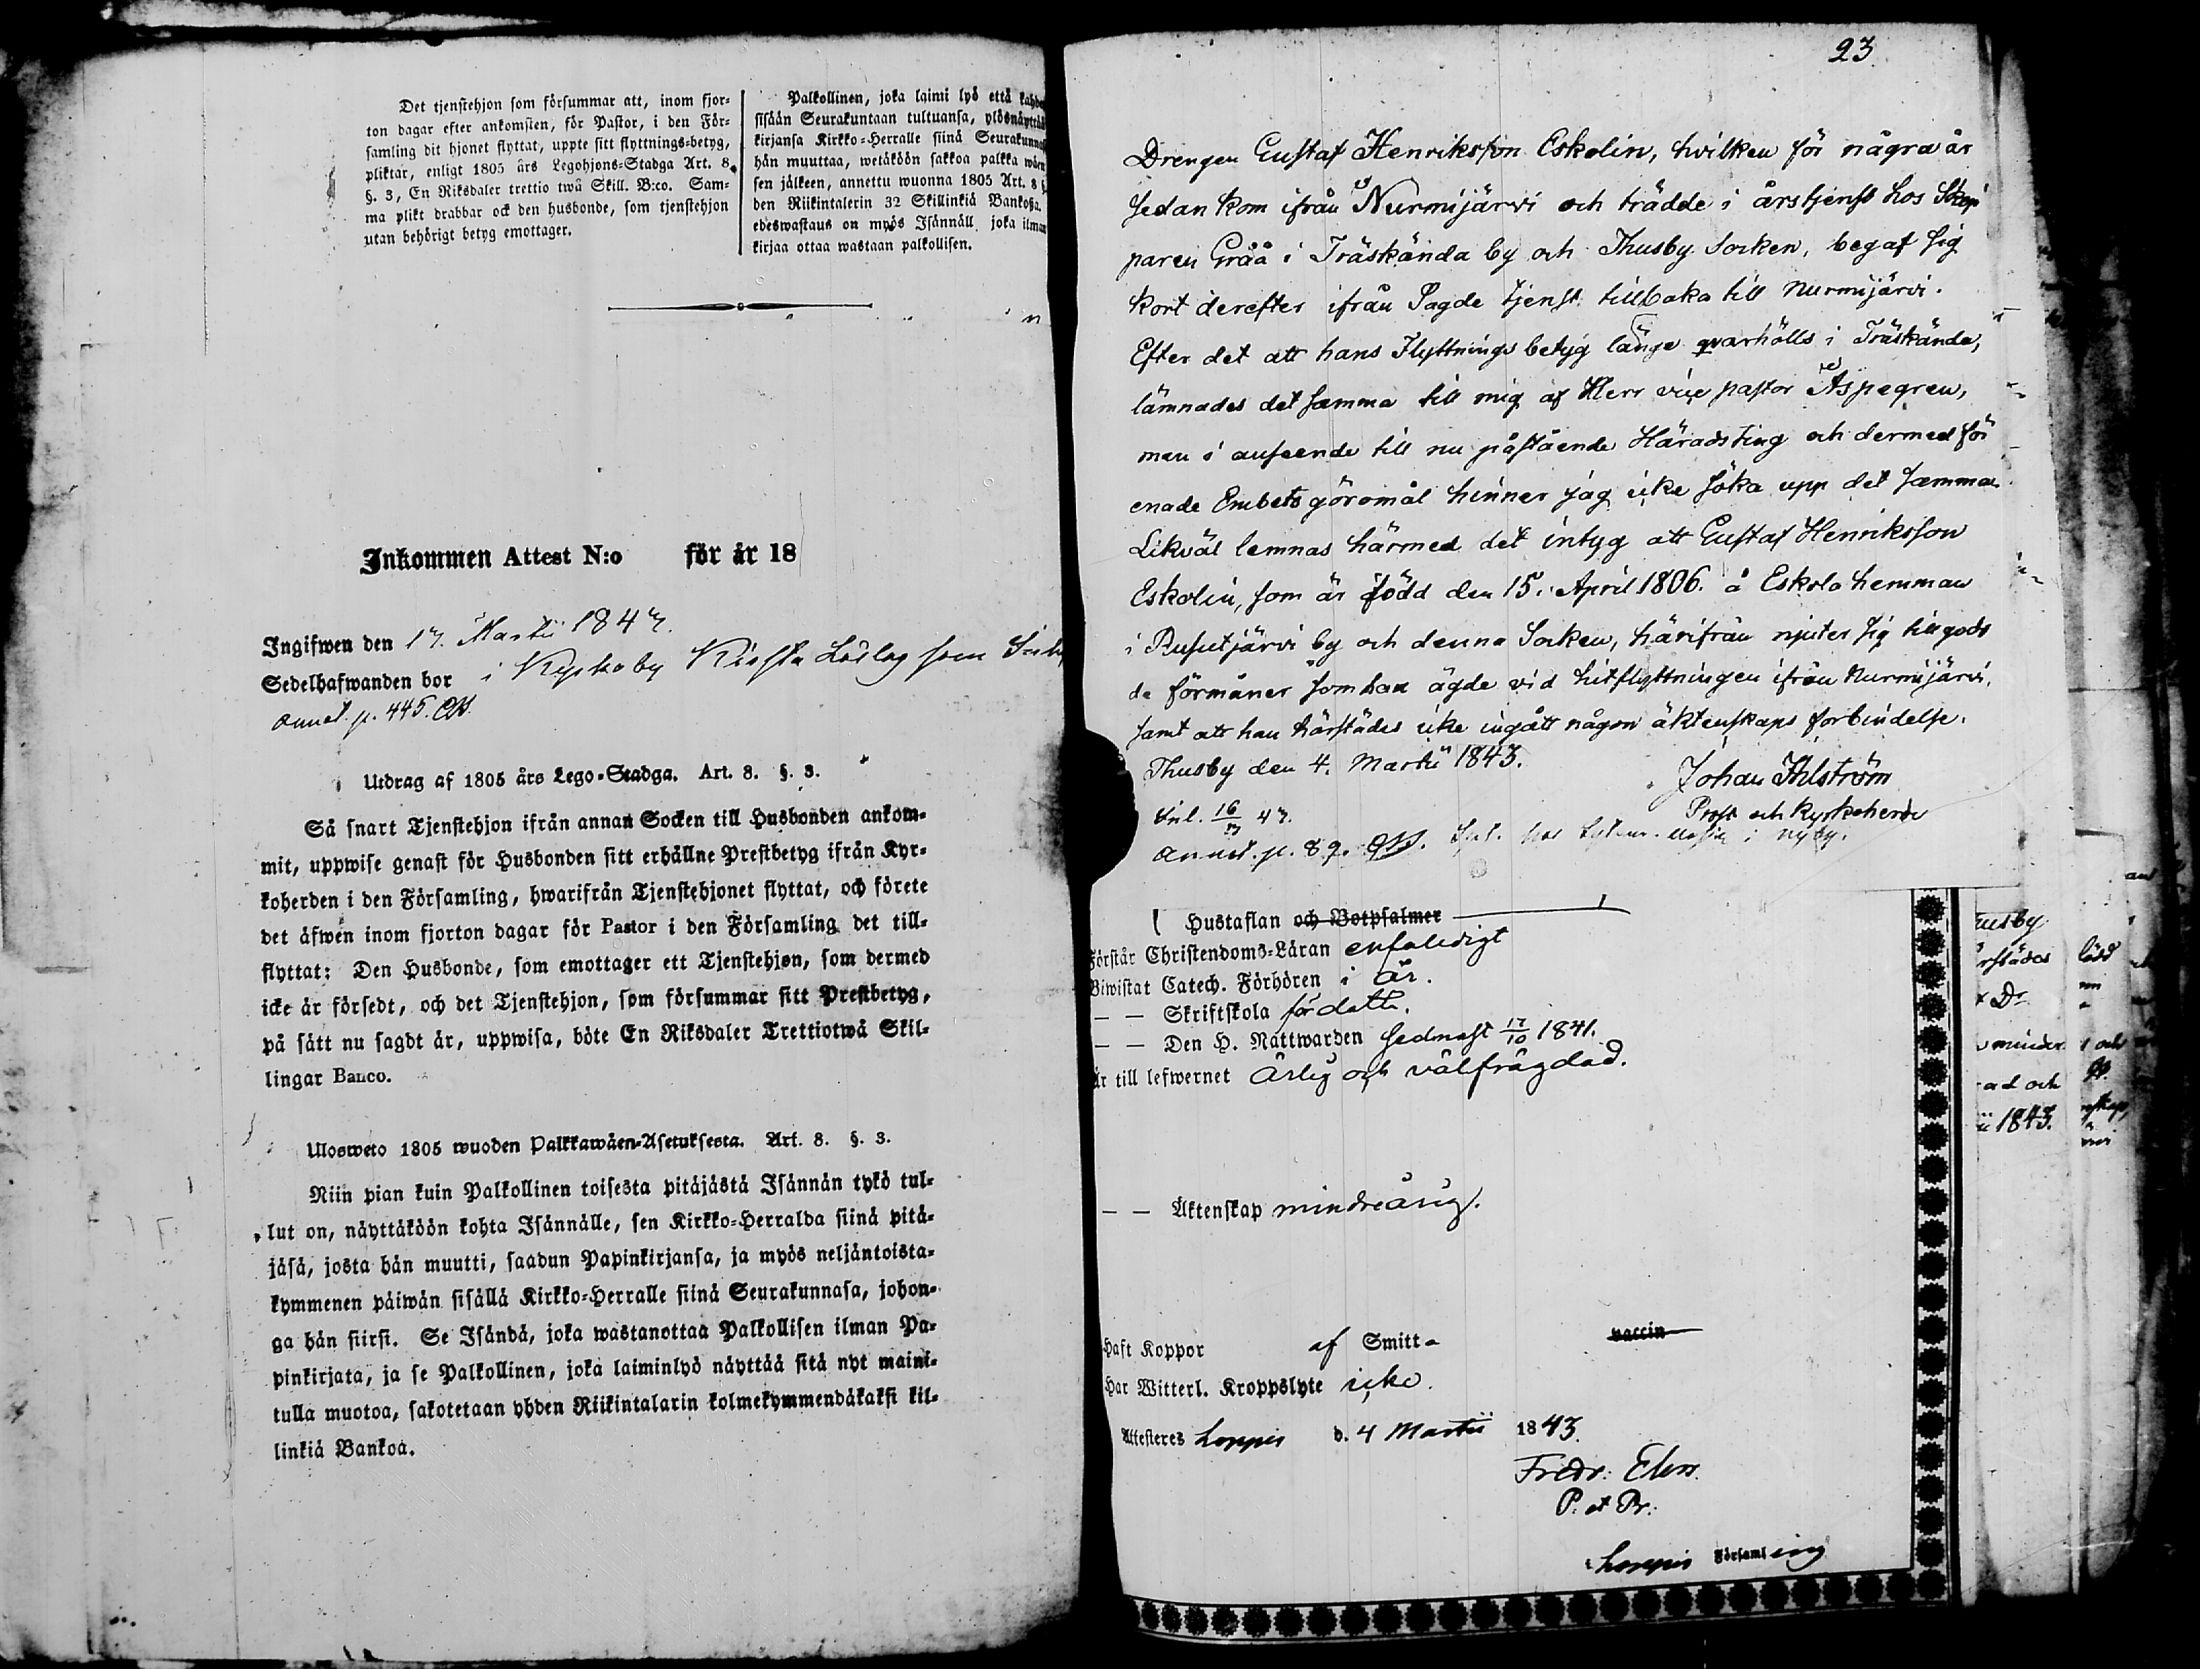 Det tjenstehjon som försummar att, inom fjor-
ton dagar efter ankomsten, för Pastor, i den För-
samling dit hjonet flyttat, uppte sitt flyttnings-betyg,
pliktar, enligt 1805 års Legohjons-Stadga Art. 8
§. 3, En Riksdaler trettio twå Skill. B:co. Sam-
ma plikt drabbar ock den husbonde, som tjenstehjon
utan behörigt betyg emottager.
Palkollinen, joka laimi lyö että
sisään Seurakuntaan tultuansa,
kirjansa Kirkko-Herralle siinä
hän muuttaa, wetäköön sakkoa palkka
sen jälkeen, annettu wuonna 1805 Art. 8
den Riikintalerin 32 Skillinkiä
edeswastaus on myös Isännäll joka
kirjaa ottaa wastaan palkollisen.
Inkommen Attest N:o för år 18
Ingifwen den 17. Martii 1843.
Sedelhafwanden bor i
annot. p. 445.
Utdrag af 1805 års Lego-Stadga. Art. 8. §. 3.
Så snart Tjenstehjon ifrån annan Socken till Husbonden ankom-
mit, uppwise genast för Husbonden sitt erhållne Prestbetyg ifrån Kyr-
koherden i den Församling, hwarifrån Tjenstehjonet flyttat, och förete
det äfwen inom fjorton dagar för Pastor i den Församling det till-
flyttat: Den Husbonde, som emottager ett Tjenstehjon, som dermed
icke är försedt, och det Tjenstehjon, som försummar sitt Prestbetyg,
på sätt nu sagdt är, uppwisa, böte En Riksdaler Trettiotwå Skil-
lingar Banco.
Ulosweto 1805 wuoden Palkkawäen-Asetuksesta. Art. 8. §. 3.
Niin pian kuin Palkollinen toisesta pitäjästä Isännän tykö tul-
lut on, näyttäköön kohta Isännälle, sen Kirkko-Herralda siinä pitä-
jäsä, josta hän muutti, saadun Papinkirjansa, ja myös neljäntoista-
kymmenen päiwän sisällä Kirkko-Herralle siinä Seurakunnasa, johon-
ga hän siirsi. Se Isändä, joka wastanottaa Palkollisen ilman Pa-
pinkirjata, ja se Palkollinen, joka laiminlyö näyttää sitä nyt maini-
tulla muotoa, sakotetaan yhden Riikintalarin kolmekymmendäkaksi kil-
linkiä Bankoa.
23
Drengen Gustaf Henriksson Eskolin, hvilken för några år
sedan kom ifrån Nurmijärvi och trädde i årstjenst hos Skep
paren Gråå i Träskända by och Thusby Socken, begaf sig
kort derefter ifrån sagde tjenst tillbaka till Nurmijärvi.
Efter det att hans Flyttnings betyg länge qvarhölls i Träskända,
lämnades det samma till mig af Herr vice pastor Aspegren,
men i anseende till nu påstående Häradsting och dermed för
enade Embetsgöromål hinner jag icke söka upp det samma.
Likväl lemnas härmed det intyg att Gustaf Henriksson
Eskolin, som är född den 15. April 1806. å Eskola hemman
i Rusutjärvi by och denna Socken, härifrån njuter sig tillgodo
de förmåner som han ägde vid hitflyttningen ifrån Nurmijärvi,
samt att han härstädes icke ingått någon äktenskaps förbindelse.
Thusby den 4. Martii 1843.
Johan Ahlström
Prost och Kyrkoherde
Inl. 16/3 43.
annot. p. 89.
Hustaflan och Botpsalmer
Förstår Christendoms-Läran enfaldigt
Biwistat Catech. Förhören i år.
— — Skriftskola för detta.
— — Den H. Nattwarden sednast 17/10 1841.
Är till lefwernet ärlig och välfrägdad.
— — Äktenskap mindreårig.
Haft Koppor af Smitta vaccin
Har Witterl. Kroppslyte icke.
Attesteres Loppis d. 4 Martii 1843.
Fredr.
P. et Pr.
Loppis Församling
1843.